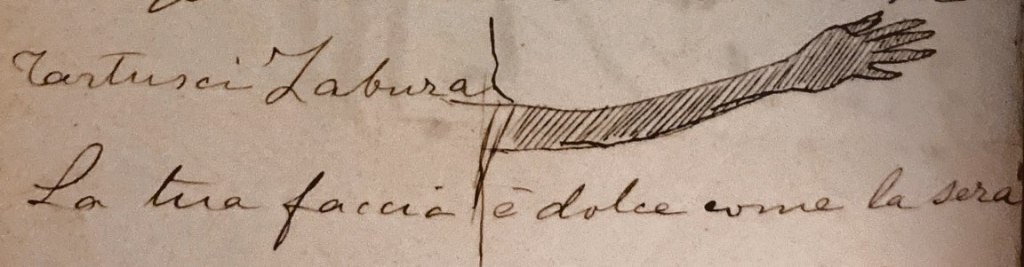 Tartusci Zabura
La tua faccia è dolce come la sera